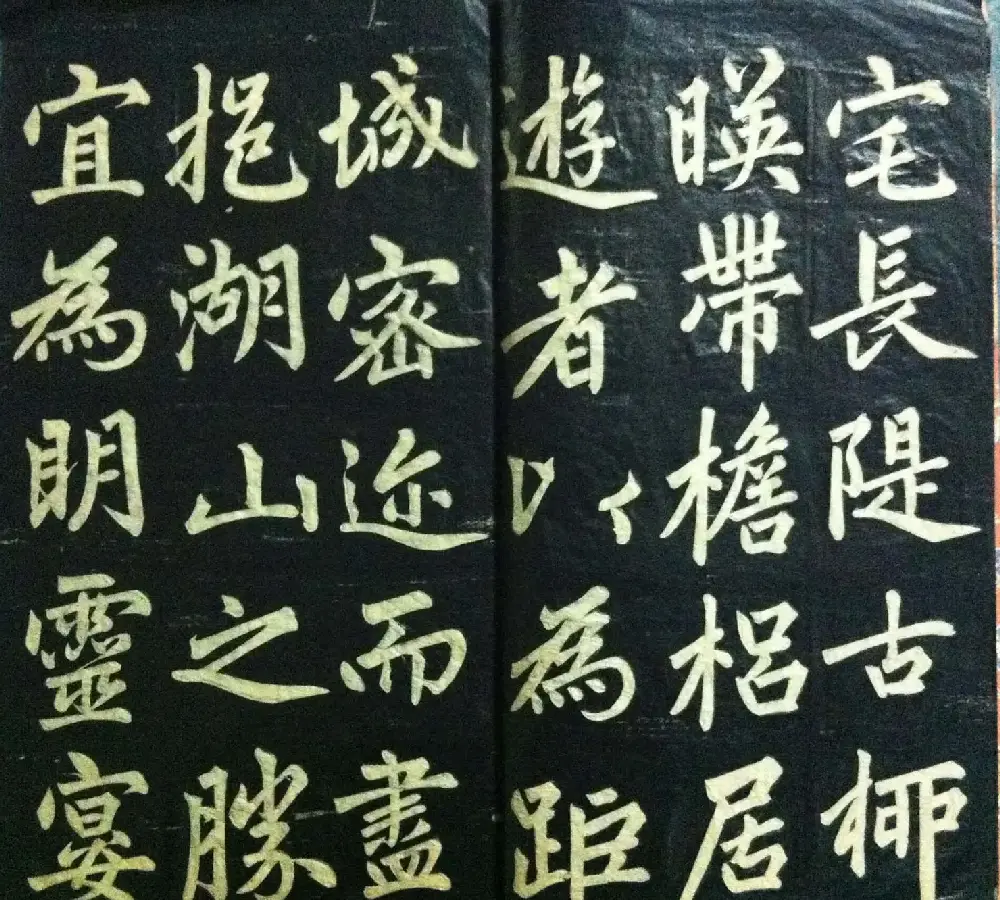 宅長隄古柳
暎帶檐梠居
遊者以為距
城密迩而盡
挹湖山之勝
宜為明靈宴